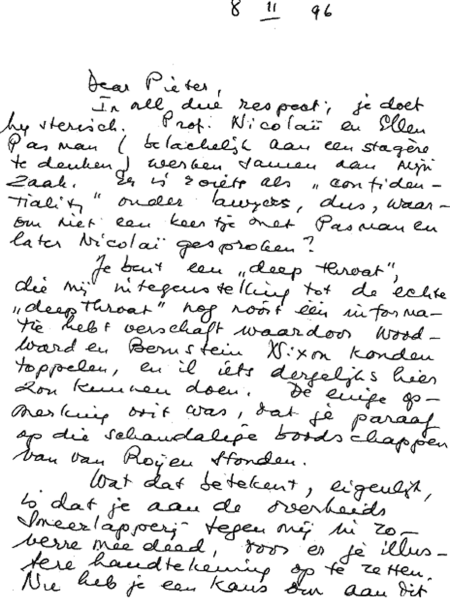 8 11 96
Dear Pieter,
In all due respect, je doet
hysterisch. Prof. Nicolaï en Ellen
Pasman (belachelijk aan een stagère
te denken) werken samen aan mijn
zaak. Er is zoiets als „confiden-
tiality" onder lawyers, dus, waar-
om niet een keertje met Pasman en
later Nicolaï gesproken?
Je bent een „deep throat",
die mij in tegenstelling tot de echte
„deep throat" nog nooit één informa-
tie hebt verschaft waardoor Wood-
ward en Bernstein Nixon konden
toppelen, en ik iets dergelijks hier
zou kunnen doen. De enige op-
merking ooit was, dat je paraaf
op die schandalige boodschappen
van van Roijen stonden.
Wat dat betekent, eigenlijk,
is dat je aan de overheids
smeerlapperij tegen mij in zo-
verre mee deed, door er je illus-
tere handtekening op te zetten.
Nu heb je een kans om aan dit